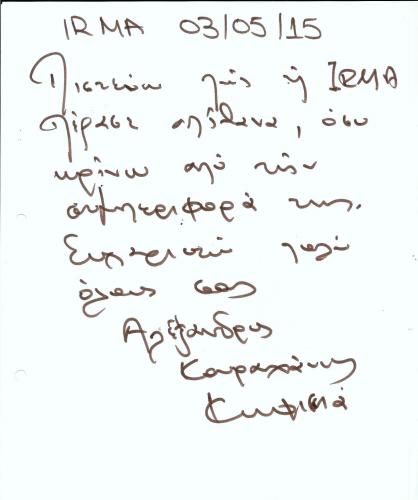 IRMA 03/05/15
Πιστεύω πως η IRMA
πέρασε απίθανα, όσο
κρίνω από την
συμπεριφορά της.
Ευχαριστώ πολύ
όλους σας
Αλέξανδρος
Καραχάλιος
Κηφισιά